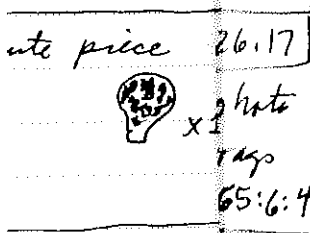 ute piece 26.17
x2 hats
rags
65:6:4